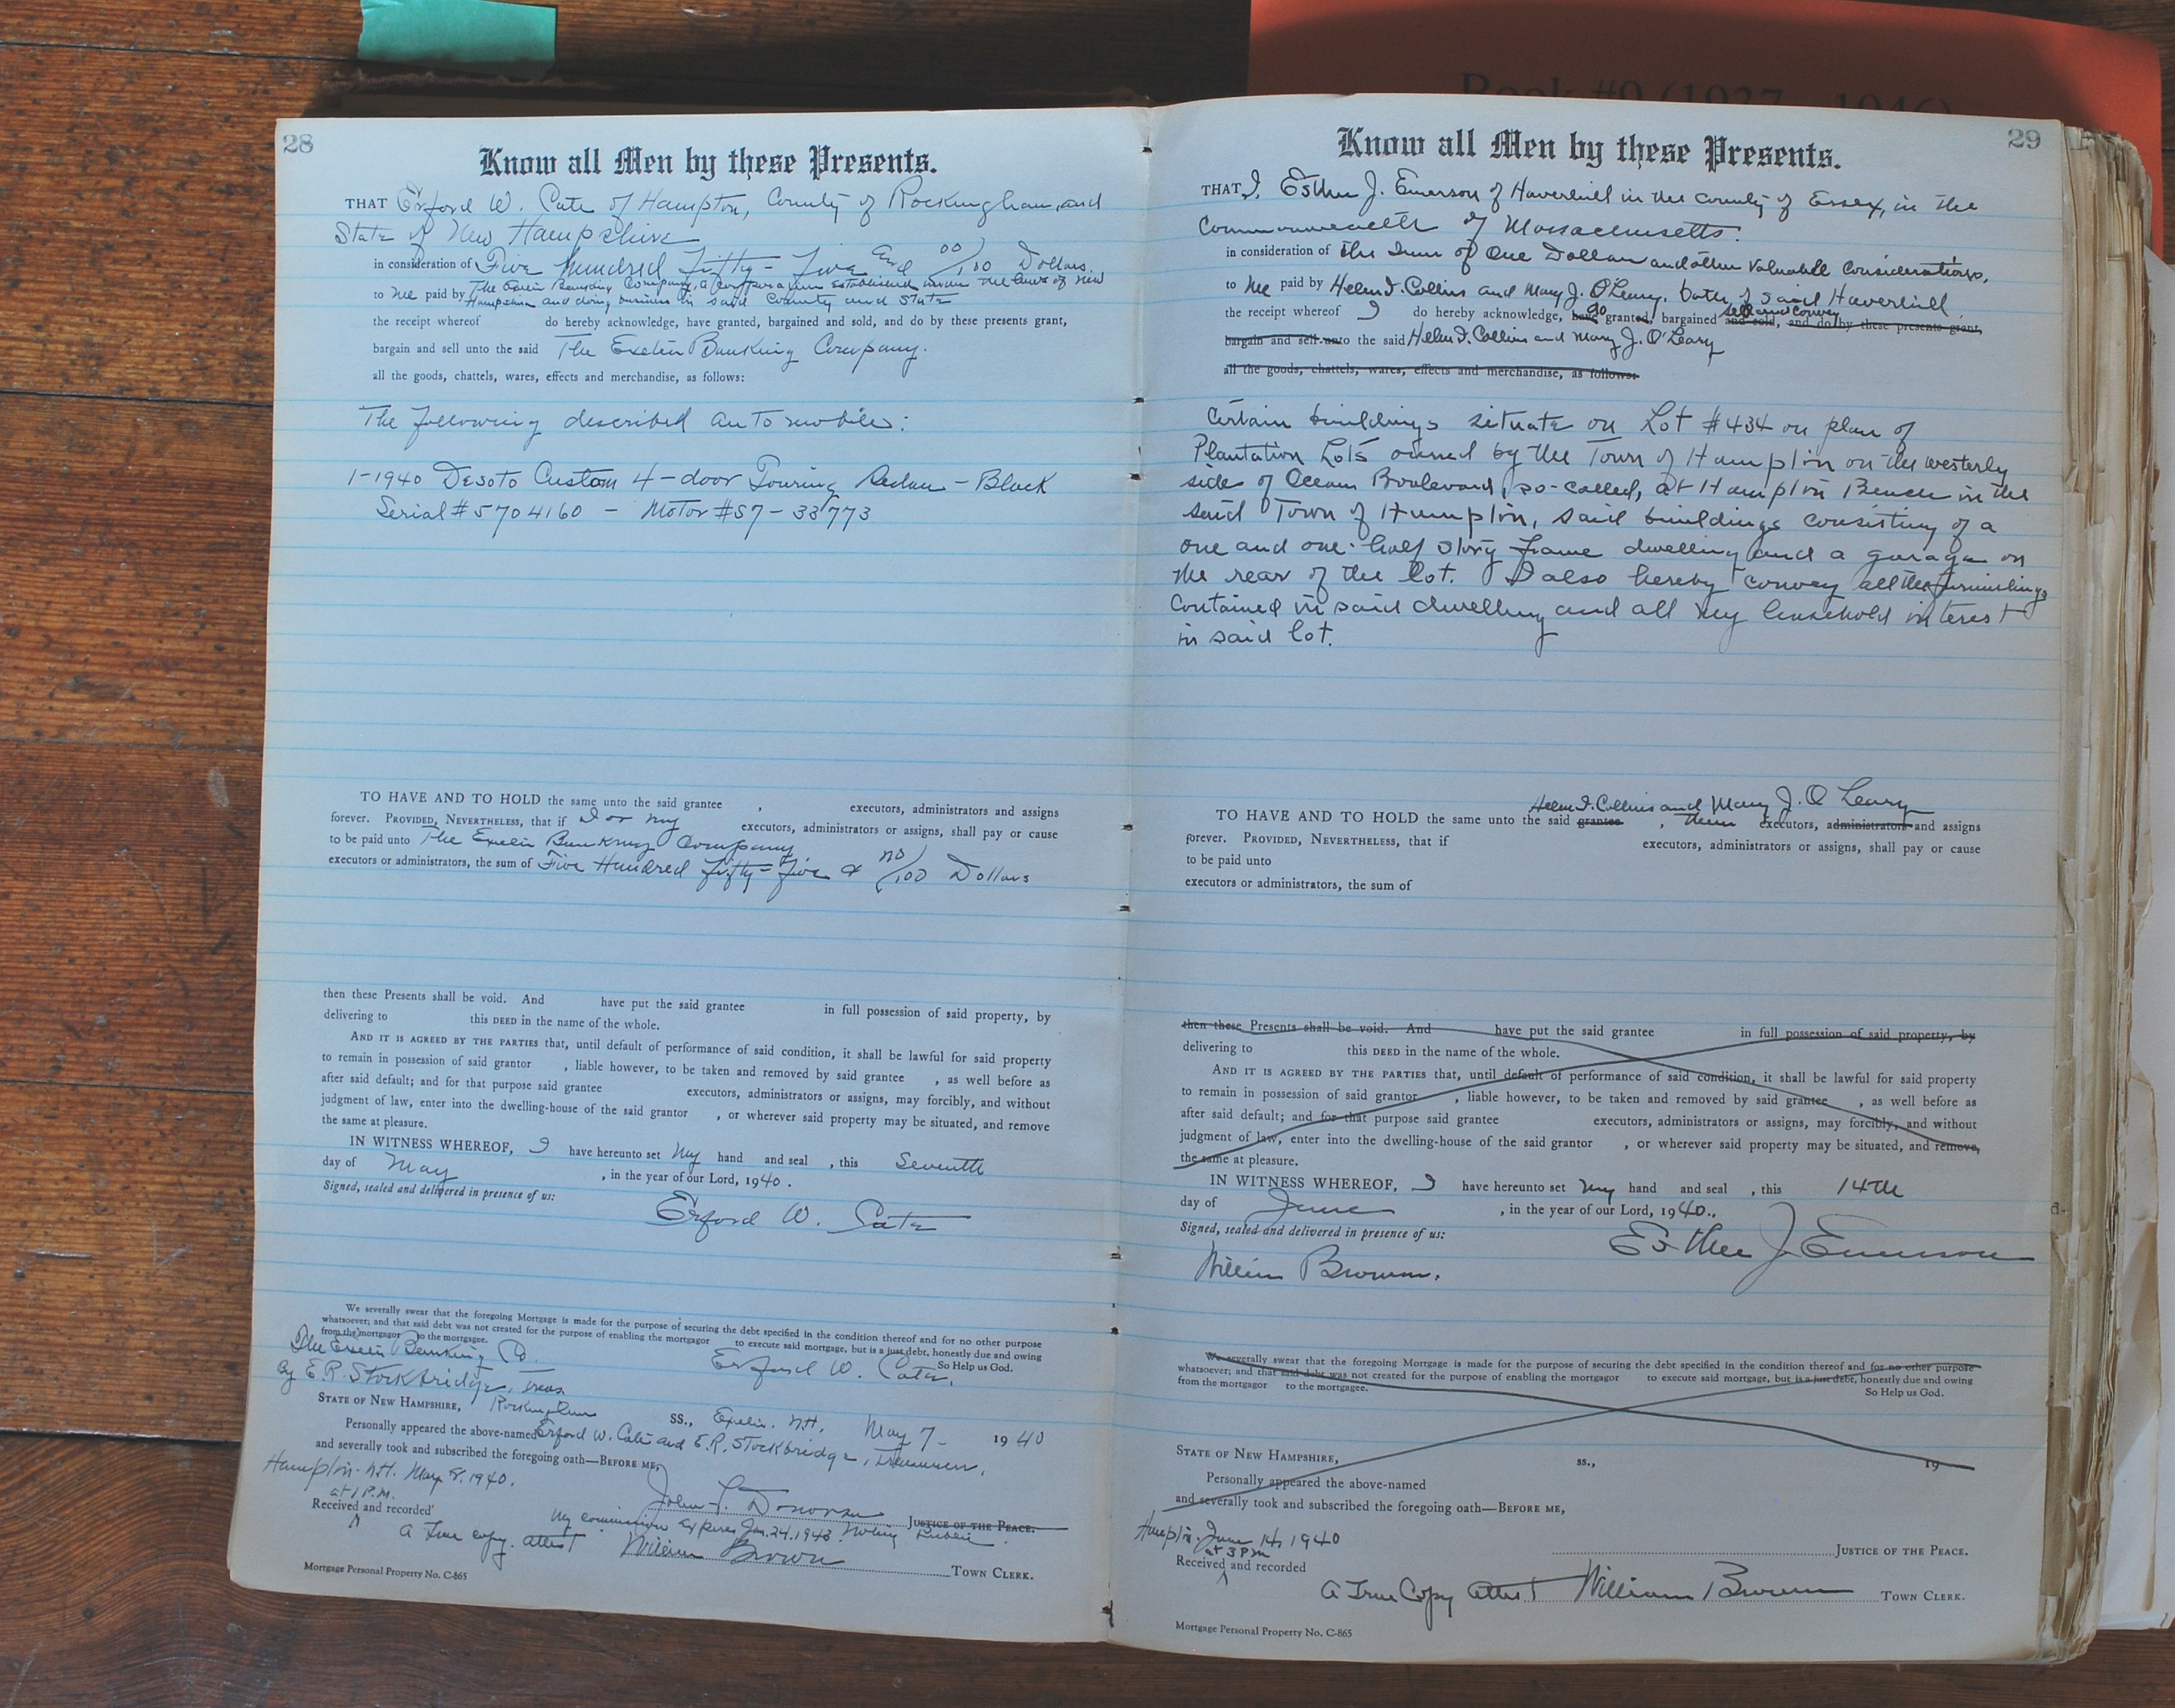 Book #9 (1937 - 1946)
28
Know all Men by these Presents.
THAT Erford W. Cate of Hampton, County of Rockingham, and
State of New Hampshire
in consideration of Five Hundred fifty-five and 00/100 Dollars.
to me paid by The Exeter Banking Company, a corporation established under the laws of New
Hampshire and doing business in said County and State
the receipt whereof do hereby acknowledge, have granted, bargained and sold, and do by these presents grant,
bargain and sell unto the said The Exeter Banking Company.
all the goods, chattels, wares, effects and merchandise, as follows:
The following described automobile:
1-1940 Desoto Custom 4-door Touring Sedan - Black
Serial #5704160 - Motor #S7-33773
TO HAVE AND TO HOLD the same unto the said grantee , executors, administrators and assigns
forever. PROVIDED, NEVERTHELESS, that if I or my executors, administrators or assigns, shall pay or cause
to be paid unto The Exeter Banking Company
executors or administrators, the sum of Five Hundred fifty-five & no/100 Dollars
then these Presents shall be void. And have put the said grantee in full possession of said property, by
delivering to this DEED in the name of the whole.
AND IT IS AGREED BY THE PARTIES that, until default of performance of said condition, it shall be lawful for said property
to remain in possession of said grantor , liable however, to be taken and removed by said grantee , as well before as
after said default; and for that purpose said grantee executors, administrators or assigns, may forcibly, and without
judgment of law, enter into the dwelling-house of the said grantor , or wherever said property may be situated, and remove
the same at pleasure.
IN WITNESS WHEREOF, I have hereunto set my hand and seal , this Seventh
day of May , in the year of our Lord, 1940.
Signed, sealed and delivered in presence of us:
Erford W. Cate
We severally swear that the foregoing Mortgage is made for the purpose of securing the debt specified in the condition thereof and for no other purpose
whatsoever; and that said debt was not created for the purpose of enabling the mortgagor to execute said mortgage, but is a just debt, honestly due and owing
from the mortgagor to the mortgagee. So Help us God.
The Exeter Banking Co. Erford W. Cate.
By E.R. Stockbridge, Treas.
STATE OF NEW HAMPSHIRE, Rockingham SS., Exeter, N.H. May 7- 1940
Personally appeared the above-named Erford W. Cate and E.R. Stockbridge, Treasurer,
and severally took and subscribed the foregoing oath—BEFORE ME,
Hampton N.H. May 8, 1940.
at 1 P.M.
John Donovan JUSTICE OF THE PEACE.
Received and recorded My commission Expires Jan. 24, 1943 Notary Public.
A True copy. attest William Brown TOWN CLERK.
Mortgage Personal Property No. C-865
29
Know all Men by these Presents.
THAT I, Esther J. Emerson of Haverhill in the County of Essex, in the
Commonwealth of Massachusetts.
in consideration of the Sum of One Dollar and other valuable considerations,
to me paid by Helen I. Collins and Mary J. O'Leary, both of said Haverhill
the receipt whereof I do hereby acknowledge, have do granted, bargained sell and convey and sold, and do by these presents grant,
bargain and sell unto the said Helen I. Collins and Mary J. O'Leary
all the goods, chattels, wares, effects and merchandise, as follows:
Certain buildings situate on Lot #434 on plan of
Plantation Lots owned by the Town of Hampton on the westerly
side of Ocean Boulevard, so-called, at Hampton Beach in the
said Town of Hampton, said buildings consisting of a
one and one-half story frame dwelling and a garage on
the rear of the lot. I also hereby convey all the furnishings
contained in said dwelling and all my leasehold interest
in said lot.
Helen I. Collins and Mary J. O'Leary
TO HAVE AND TO HOLD the same unto the said grantee , their executors, administrators and assigns
forever. PROVIDED, NEVERTHELESS, that if executors, administrators or assigns, shall pay or cause
to be paid unto
executors or administrators, the sum of
then these Presents shall be void. And have put the said grantee in full possession of said property, by
delivering to this DEED in the name of the whole.
AND IT IS AGREED BY THE PARTIES that, until default of performance of said condition, it shall be lawful for said property
to remain in possession of said grantor , liable however, to be taken and removed by said grantee , as well before as
after said default; and for that purpose said grantee executors, administrators or assigns, may forcibly, and without
judgment of law, enter into the dwelling-house of the said grantor , or wherever said property may be situated, and remove,
the same at pleasure.
IN WITNESS WHEREOF, I have hereunto set my hand and seal , this 14th
day of June , in the year of our Lord, 1940.
Signed, sealed and delivered in presence of us:
Esther J. Emerson
William Brown.
We severally swear that the foregoing Mortgage is made for the purpose of securing the debt specified in the condition thereof and for no other purpose
whatsoever; and that said debt was not created for the purpose of enabling the mortgagor to execute said mortgage, but is a just debt, honestly due and owing
from the mortgagor to the mortgagee. So Help us God.
STATE OF NEW HAMPSHIRE, ss., 19
Personally appeared the above-named
and severally took and subscribed the foregoing oath—BEFORE ME,
Hampton June 14, 1940
at 3 PM
JUSTICE OF THE PEACE.
Received and recorded
A True Copy attest William Brown TOWN CLERK.
Mortgage Personal Property No. C-865